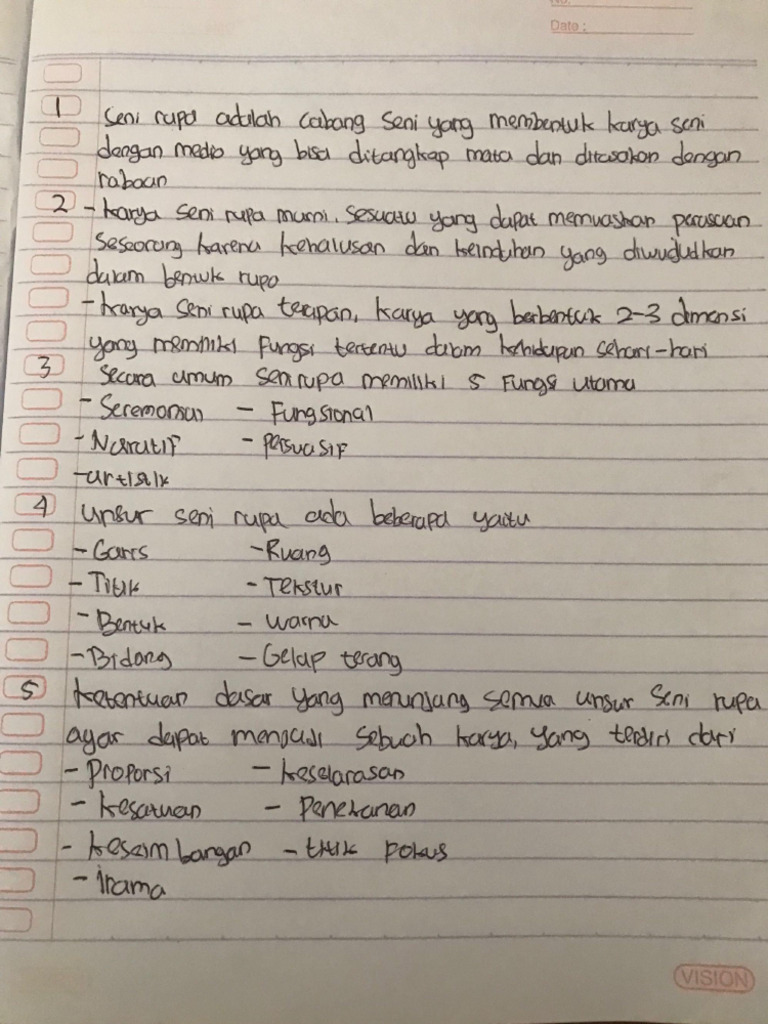 No.
Date :
1 Seni rupa adalah cabang seni yang membentuk karya seni
dengan media yang bisa ditangkap mata dan dirasakan dengan
rabaan
2 - Karya seni rupa murni. Sesuatu yang dapat memuaskan perasaan
Seseorang karena kehalusan dan keindahan yang diwujudkan
dalam bentuk rupa
- Karya seni rupa terapan, karya yang berbentuk 2-3 dimensi
yang memiliki fungsi tertentu dalam kehidupan sehari-hari
3 Secara umum seni rupa memiliki 5 Fungsi utama
- Seremonial - Fungsional
- Naratif - persuasif
- artistik
4 Unsur seni rupa ada beberapa yaitu
- Garis - Ruang
- Titik - Tekstur
- Bentuk - warna
- Bidang - Gelap terang
5 Ketentuan dasar yang menunjang semua unsur seni rupa
agar dapat menjadi sebuah karya, yang terdiri dari
- Proporsi - keselarasan
- kesatuan - penekanan
- keseimbangan - titik pokus
- irama
VISION